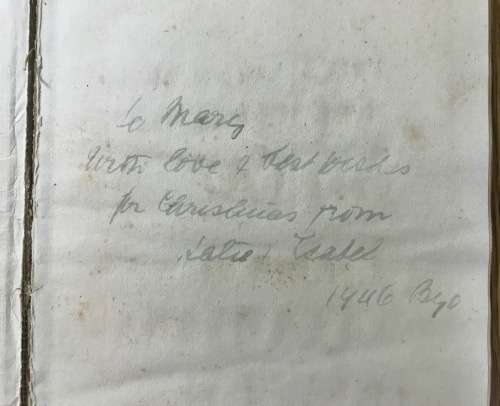 to Mary
With love & best wishes
for Christmas from
Katie Isabel
1946 Byo